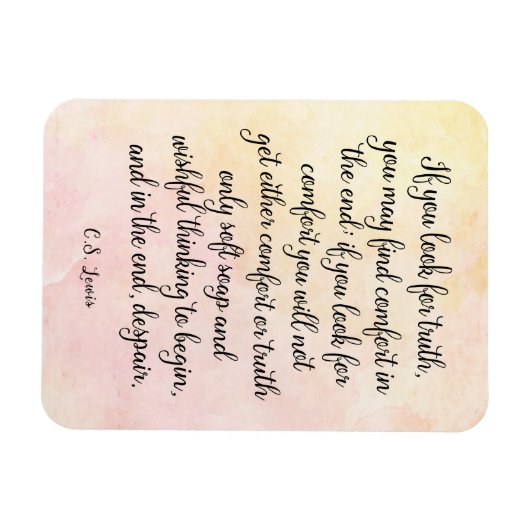 If you look for truth,
you may find comfort in
the end; if you look for
comfort you will not
get either comfort or truth
only soft soap and
wishful thinking to begin,
and in the end, despair.
C.S. Lewis